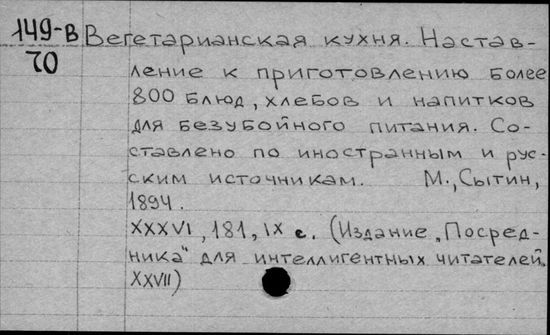 149-В Вегетарианская кухня. Настав-
70 ление к приготовлению более
800 блюд, хлебов и напитков
для безубойного питания. Со-
ставлено по иностранным и рус-
ским источникам. М., Сытин,
1894.
XXXVI, 181, IX с. (Издание „Посред-
ника" для интеллигентных читателей.
XXVII)